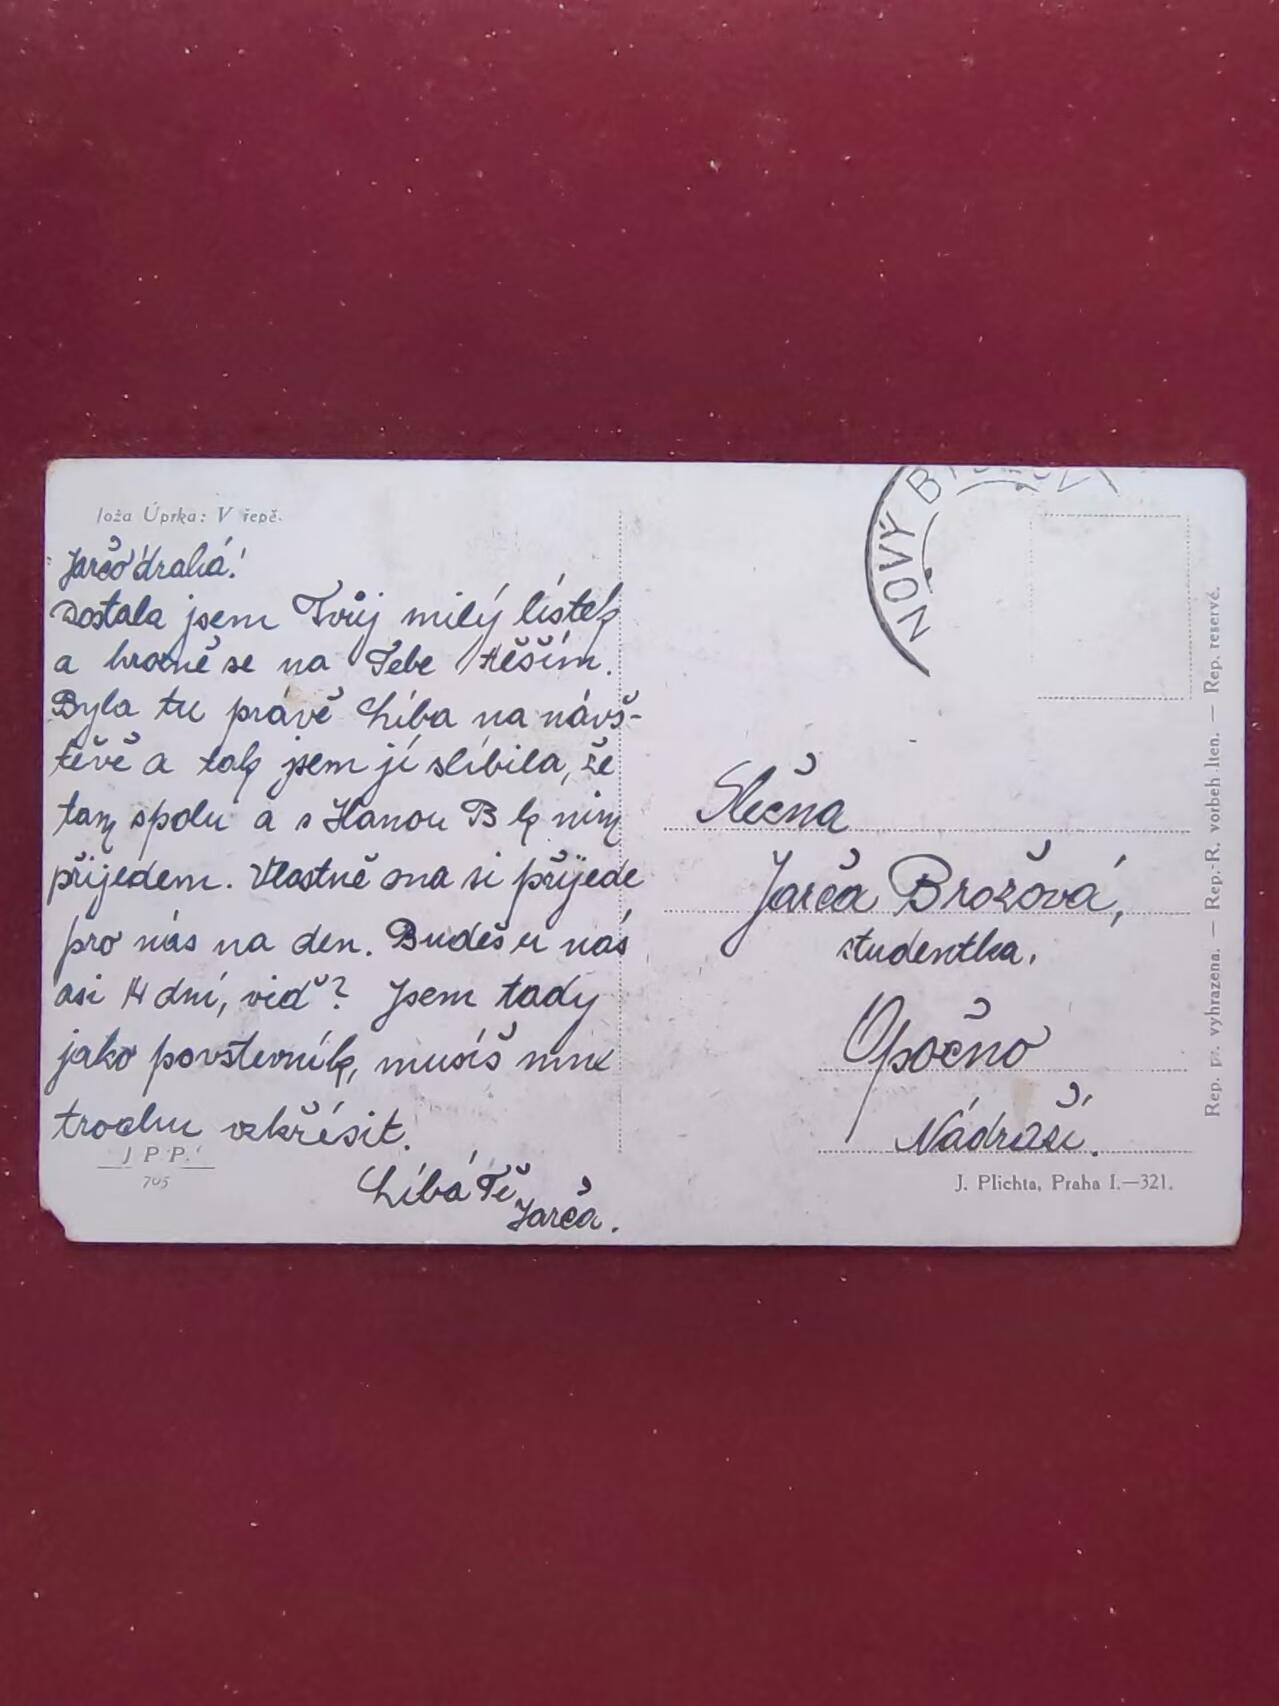 Joža Úprka: V řepě.
Jarčo drahá!
Dostala jsem Tvůj milý lístek
a hrozně se na Tebe těším.
Byla tu právě Líba na návš-
těvě a tak jsem jí slíbila, že
tam spolu a s Hanou B k nim
přijedem. Vlastně ona si přijede
pro nás na den. Budeš u nás
asi 14 dní, viď? Jsem tady
jako povstevník, musíš mne
trochu vzkřésit.
Líbá Tě
Jarča.
J P P.
705
NOVÝ
Slečna
Jarča Brožová,
studentka.
Opočno
Nádraží.
J. Plichta, Praha I.—321.
Rep. pr. vyhrazena. — Rep.-R. vorbehalten. — Rep. reservé.